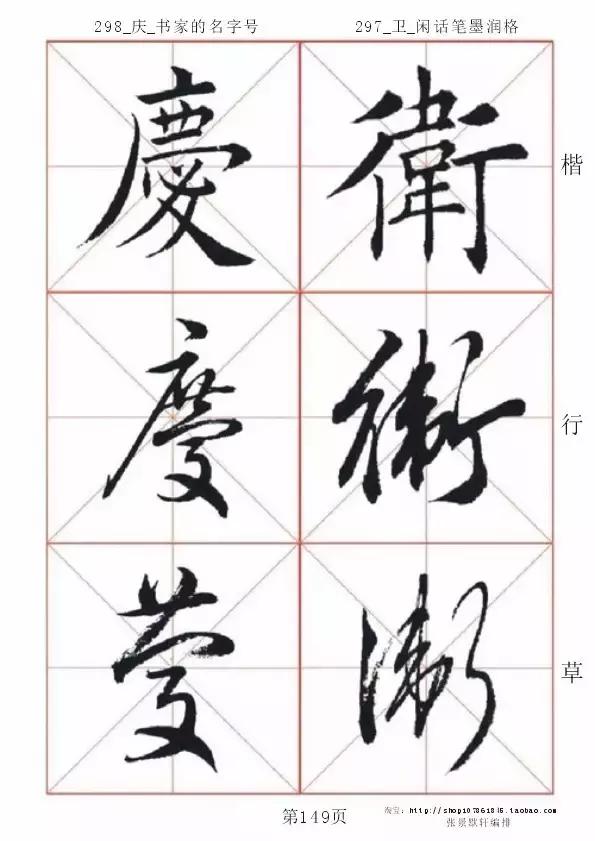 298_庆_书家的名字号 297_卫_闲话笔墨润格
慶 衛 楷
慶 衛 行
慶 衛 草
第149页 淘宝：http://shop107861816.taobao.com
张景默轩编排